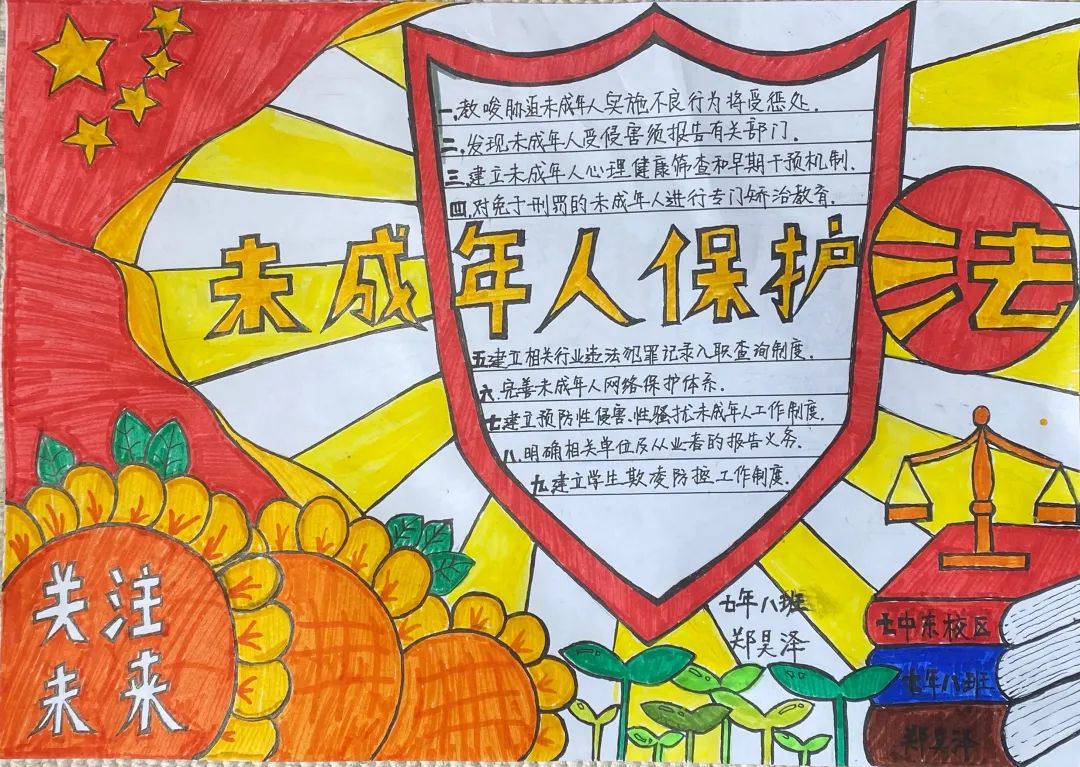 一.教唆胁迫未成年人实施不良行为将受惩处.
二.发现未成年人受侵害须报告有关部门.
三.建立未成年人心理健康筛查和早期干预机制.
四.对免于刑罚的未成年人进行专门矫治教育.
未成年人保护法
五建立相关行业违法犯罪记录入职查询制度.
六.完善未成年人网络保护体系.
七建立预防性侵害.性骚扰未成年人工作制度.
八.明确相关单位及从业者的报告义务.
九建立学生欺凌防控工作制度.
关注
未来
七年八班
郑昊泽
七中东校区
七年八班
郑昊泽